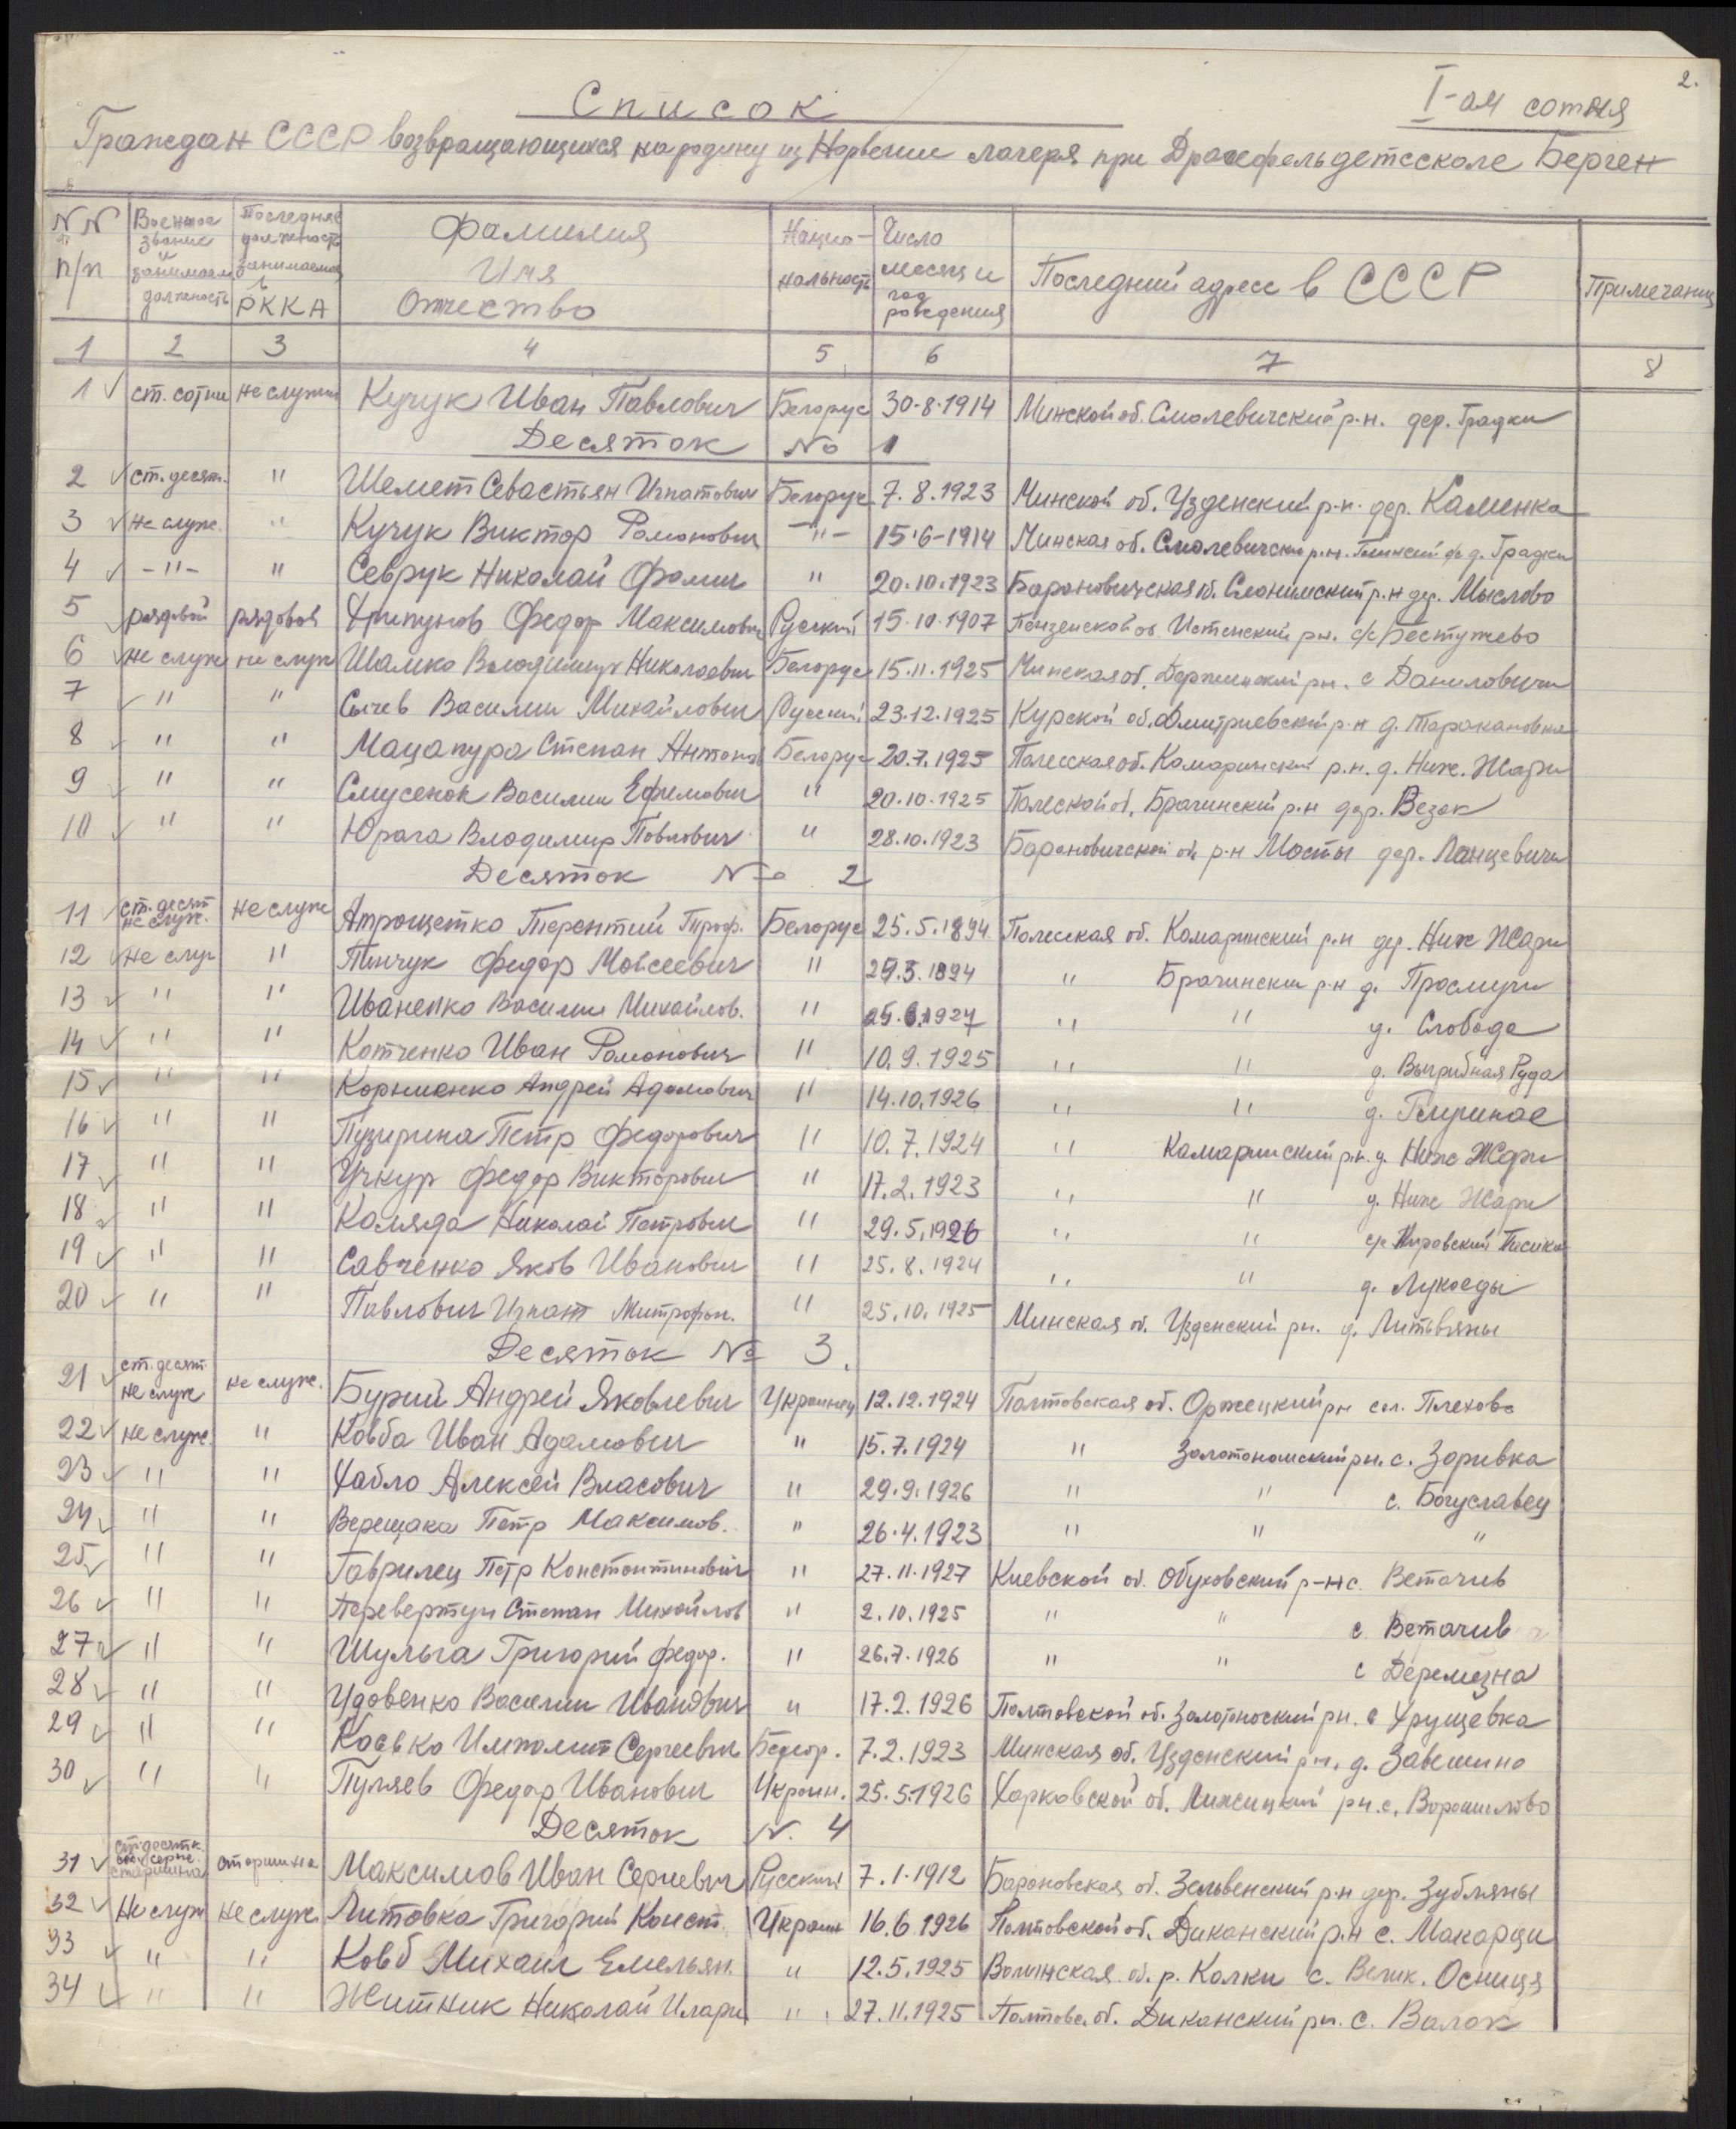 2.
I-ая сотня
Список
Граждан СССР возвращающихся на родину из Норвегии лагеря при Драгефельдетсколе Берген
NN п/п | Военное звание и занимаем должность | Последняя должность занимаемая в РККА | Фамилия Имя Отчество | Нацио-нальность | Число месяц и год рождения | Последний адрес в СССР | Примечание
1 2 3 4 5 6 7 8
1 ст. сотни не служил Кучук Иван Павлович Белорус 30-8-1914 Минской об. Смолевический р-н. дер. Градки
Десяток No 1
2 ст. десят. " Шемет Севастьян Игнатович Белорус 7.8.1923 Минской об. Узденский р-н. дер. Каменка
3 не служ. " Кучук Виктор Романович -"- 15-6-1914 Минская об. Смолевически р.н. д. Градки
4 -"- " Севрук Николай Фомич " 20.10.1923 Барановическая об. Слонимский р.н дер. Мыслово
5 рядовой рядовой Хрипунов Федор Максимович Русский 15.10.1907 Пензенской об Истенский рн. с/с Бестужево
6 не служ не служ Шамко Володимир Николаевич Белорус 15.11.1925 Минская об. Держинский рн. с Даниловичи
7 " " Сычев Василии Михайлович Русский 23.12.1925 Курской об. Дмитриевский р-н д. Таракановка
8 " " Мацапура Степан Антонов Белорус 20.7.1925 Полесская об. Камаринский р.н. д. Ниж. Жари
9 " " Смусенок Василии Ефимович " 20.10.1925 Полеской об. Брагинский р-н дер. Везок
10 " " Юрага Владимир Повлович " 28.10.1923 Барановичской об р-н Мосты дер. Ланцевичи
Десяток No 2
11 ст. десят не служ. не служ Атрощетко Терентий Троф. Белорус 25.5.1894 Полесская об. Камаринский р.н дер. Ниж Жари
12 не служ " Тинчук Федор Моисеевич " 29.3.1894 " Брагинскии р-н д. Просмычи
13 " " Иваненко Василии Михайлов. " 25.6.1927 " " д. Слобода
14 " " Котченко Иван Романович " 10.9.1925 " " д. Выгрибная Руда
15 " " Корниенко Андрей Адамович " 14.10.1926 " " д.
16 " " Пузирина Петр Федорович " 10.7.1924 " Камаринский р.н. д. Ниже Жари
17 " " Учкур Федор Викторович " 17.2.1923 " " д. Ниж Жари
18 " " Коляда Николай Петрович " 29.5.1926 " " с/с Кировский
19 " " Савченко Яков Иванович " 25.8.1924 " " д. Лукоеды
20 " " Павлович Игнат Митрофон. " 25.10.1925 Минская об. Узденский рн. д. Литвяны
Десяток № 3.
21 ст. десят не служ не служ. Бурий Андрей Яковлевич Украинец 12.12.1924 Полтовская об. Оржецкий рн сел. Плехово
22 не служ. " Ковба Иван Адамович " 15.7.1924 " Золотономский рн. с. Зоривка
23 " " Хабло Алексей Власович " 29.9.1926 " " с. Богуславец
24 " " Верещака Петр Максимов. " 26.4.1923 " " "
25 " " Гаврилец Петр Константинович " 27.11.1927 Киевской об. Обуховский р-н с.Ветачив
26 " " Перевертун Степан Михойлов " 2.10.1925 " " с Ветачив
27 " " Шульга Григорий Федор. " 26.7.1926 " " с Деремезна
28 " " Удовенко Василии Иванович " 17.2.1926 Полтовской об. Золотоноский рн. с Хрущевка
29 " " Косько Имполит Сергеевич Белор. 7.2.1923 Минская об. Узденский рн. д. Завешино
30 " " Пуляев Федор Иванович Украин. 25.5.1926 Харковской об. рн. с. Ворошилово
Десяток N. 4
31 ст. десятк старшина старшина Максимов Иван Сергиевич Русский 7.1.1912 Бароновская об. Зельвенский р-н дер. Зубляны
32 Не служ не служ. Литовка Григорий Конст. Украин 16.6.1926 Полтовской об. Диканский р.н с. Макорци
33 " " Ковб Михаил Емельян. " 12.5.1925 Волинская об. р. Колки с. Велик. Осница
34 " " Житник Николай Илари " 27.11.1925 Полтовс. об. Диканский рн. с. Валок